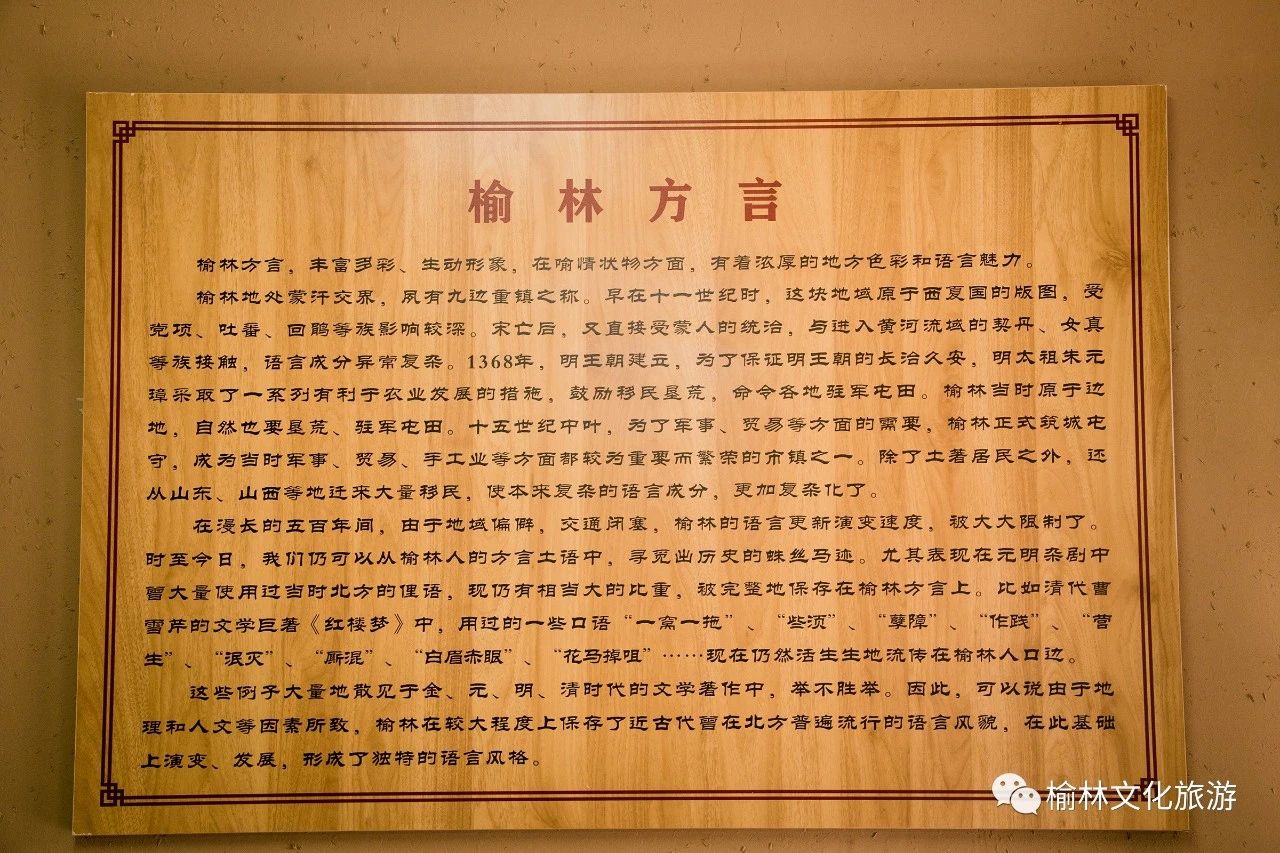 榆林方言
榆林方言，丰富多彩、生动形象，在喻情状物方面，有着浓厚的地方色彩和语言魅力。
榆林地处蒙汗交界，夙有九边重镇之称。早在十一世纪时，这块地域原于西夏国的版图，受
党项、吐番、回鹘等族影响较深。宋亡后，又直接受蒙人的统治，与进入黄河流域的契丹、女真
等族接触，语言成分异常复杂。1368年，明王朝建立，为了保证明王朝的长治久安，明太祖朱元
璋采取了一系列有利于农业发展的措施，鼓励移民垦荒，命令各地驻军屯田。榆林当时原于边
地，自然也要垦荒、驻军屯田。十五世纪中叶，为了军事、贸易等方面的需要，榆林正式筑城屯
守，成为当时军事、贸易、手工业等方面都较为重要而繁荣的市镇之一。除了土著居民之外，还
从山东、山西等地迁来大量移民，使本来复杂的语言成分，更加复杂化了。
在漫长的五百年间，由于地域偏僻，交通闭塞，榆林的语言更新演变速度，被大大限制了。
时至今日，我们仍可以从榆林人的方言土语中，寻觅出历史的蛛丝马迹。尤其表现在元明杂剧中
曾大量使用过当时北方的俚语，现仍有相当大的比重，被完整地保存在榆林方言上。比如清代曹
雪芹的文学巨著《红楼梦》中，用过的一些口语“一窝一拖”、“些须”、“孽障”、“作践”、“营
生”、“泯灭”、“厮混”、“白眉赤眼”、“花马掉咀”……现在仍然活生生地流传在榆林人口边。
这些例子大量地散见于金、元、明、清时代的文学著作中，举不胜举。因此，可以说由于地
理和人文等因素所致，榆林在较大程度上保存了近古代曾在北方普遍流行的语言风貌，在此基础
上演变、发展，形成了独特的语言风格。
榆林文化旅游